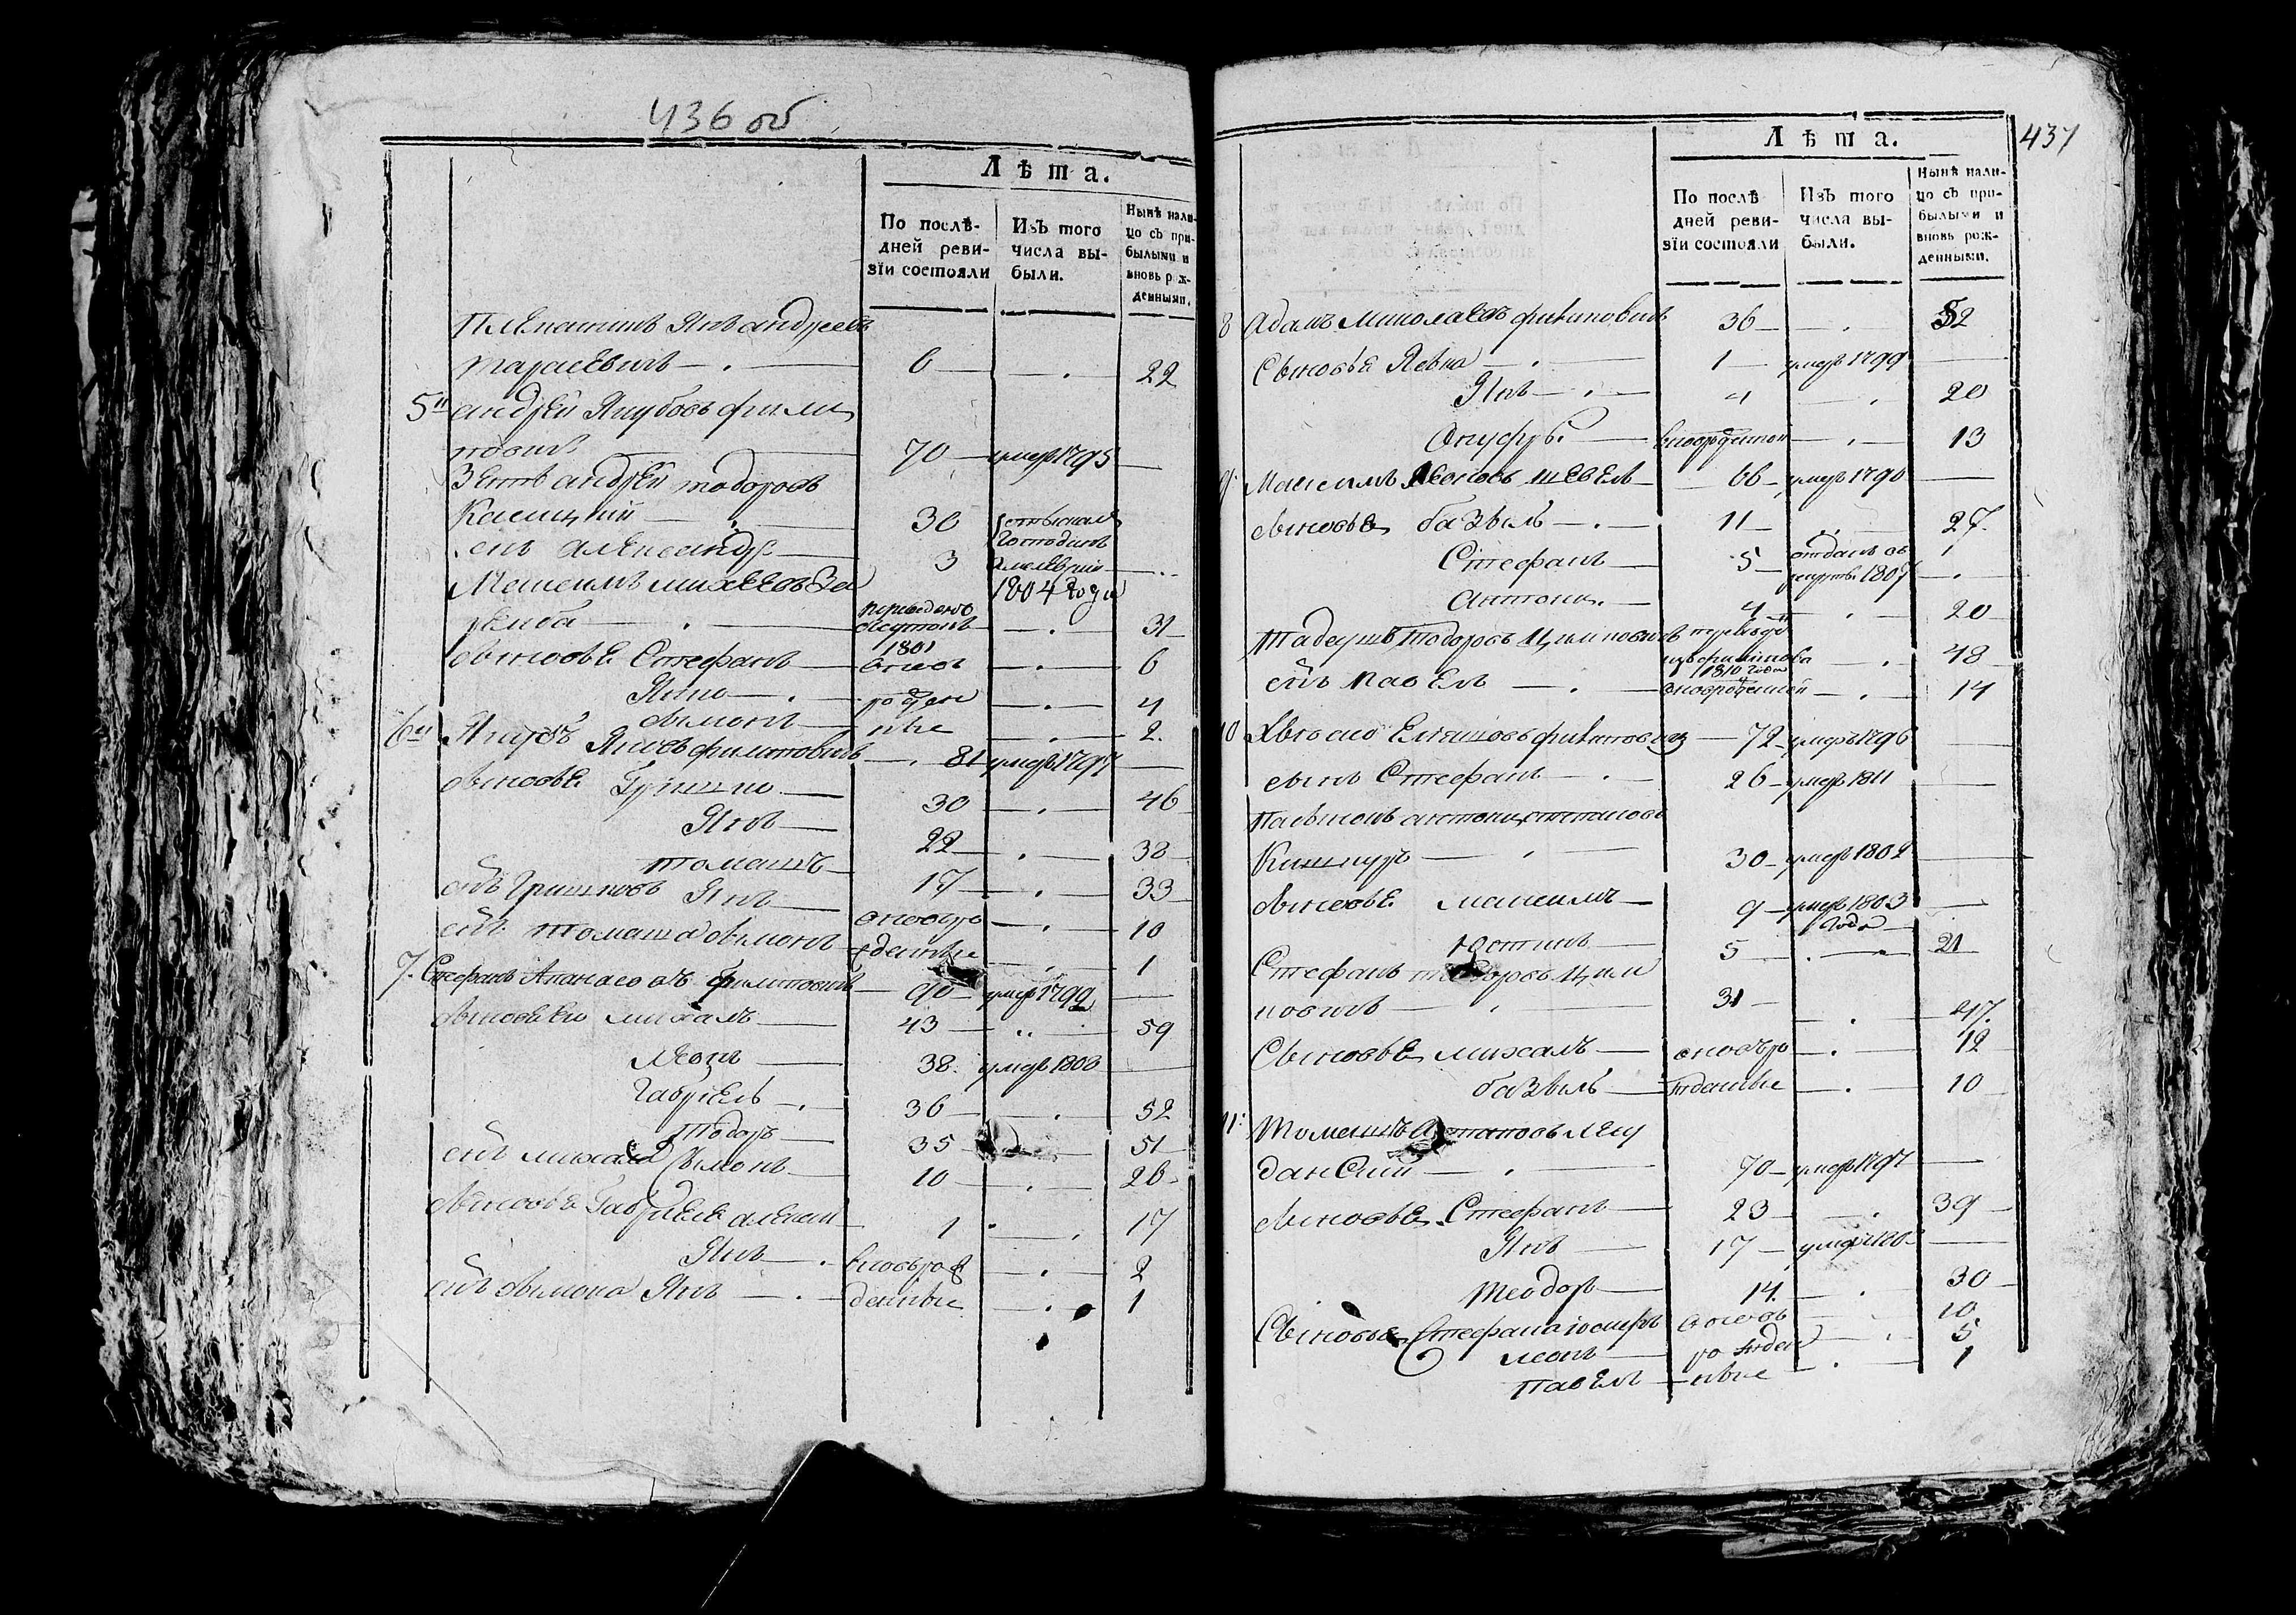 436 об
Лѣта.
По послѣ-
дней реви-
зїи состояли
Изъ того
числа вы-
были.
Нынѣ нали-
цо съ при-
былыми и
вновь рож-
денными.
Племянникъ Янъ андреевъ
тарасевичъ — 6 — . — 22
5й андрей Якубовъ фили
повичъ 70 — умеръ 1795 —
Зеть андрей тодоровъ
30
сынъ александръ — 3
1804 года
михеевъ
31
сыновьѧ Стефанъ — вновь — . — 6
рожден — . — 4
сымонъ — ные — . — 2
6й Якубъ Яновъ филиповичъ — 81 умеръ 1797 —
сыновьѧ Гришко — 30 — . — 46
Янъ — 22 — . — 38
томашъ — 17 — . — 33
сынъ Гришковъ Янъ — вновьро — . — 10
сынъ томаша сымонъ — жденные — . — 1
7. Стефанъ Апанасовъ филиповичъ — 90 — умеръ 1799 —
михалъ — 43 — 59
Леонъ — 38. умеръ 1808 —
Габріель — . — 36 — . — 52
тодоръ — 35 — 51
сынъ михала Сымонъ — 10 — . — 26
сыновьѧ Габріеля алексѣй — 1 — . — 17
Янъ — . вноврож — . — 2
сынъ сымона Янъ — . — денные — . — 1
437
Лѣта.
По послѣ
дней реви-
зїи состояли
Изъ того
числа вы-
были.
Нынѣ нали-
цо съ при-
былыми и
вновь рож-
денными.
8 Адамъ миколаевъ филиповичъ 36 — . 52
Сыновьѧ Левка — . — 1 — умеръ 1799 —
Янъ — . — 4 — . 20
Онуфръ. — вновրожден — . — 13
9. Максимъ Леоновъ шевель — 66 — умеръ 1790 —
сыновьѧ базыль — . — 11 — 27.
Стефанъ — 5 — отданъ въ
рекруты 1807 — . —
Антони. — 4 — . 20
Тадеушъ тодоровъ Циминовичъ переведен
1810 года — . — 48
сынъ павелъ — . — вноврожденной — . — 14
10 филиповичъ — 72 — умеръ 1796 —
сынъ Стефанъ — . 26 — умеръ 1811 —
антони
30 — умеръ 1802 —
сыновьѧ максимъ — 9 — умеръ 1803
года —
Юстинъ — 5 — . — 21
Стефанъ тодоровъ Цими
новичъ — . — 31 — . — 47.
Сыновьѧ михалъ — вновьро — . — 12
базыль — жденные — . — 10
11: Томашъ
данский — . — 70 — умеръ 1797 —
сыновьѧ Стефанъ — 23 — . — 39
Янъ — 17 — —
теодоръ — 14. — . 30
Сыновьѧ Стефана іосифъ вновь 10
леонъ — рожден 5
павелъ — ные — . — 1